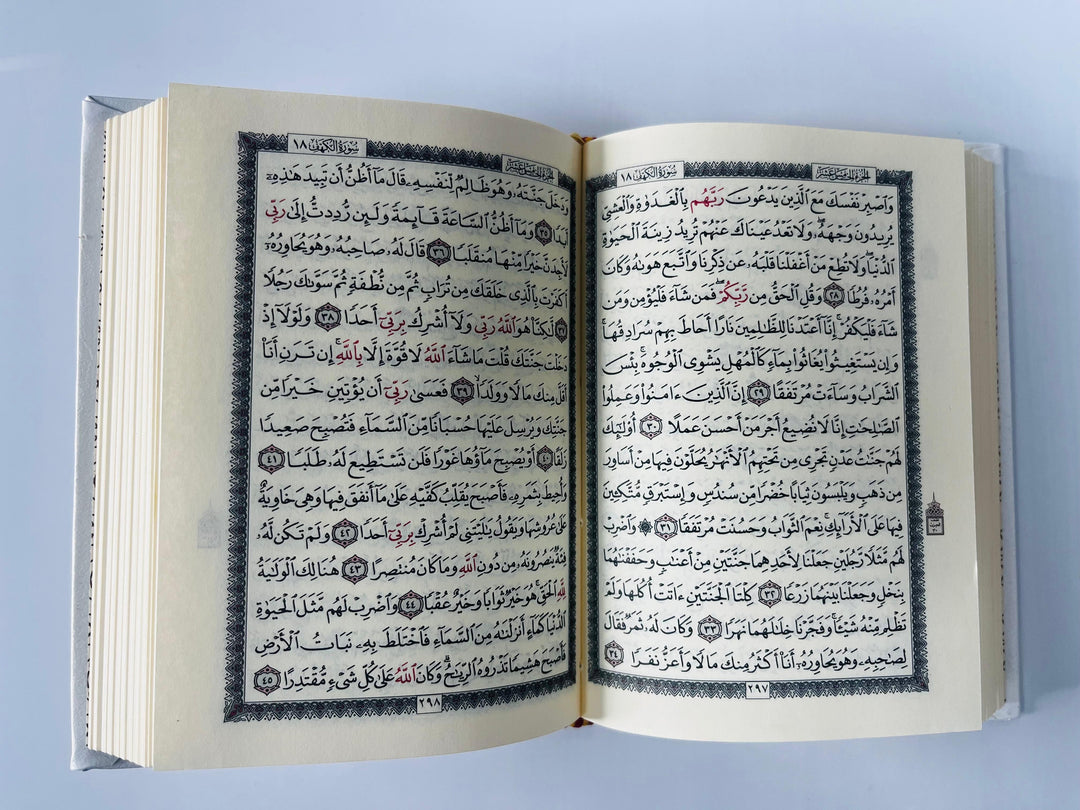 الجزء الخامس عشر
سورة الكهف ١٨
وَٱصۡبِرۡ نَفۡسَكَ مَعَ ٱلَّذِينَ يَدۡعُونَ رَبَّهُم بِٱلۡغَدَوٰةِ وَٱلۡعَشِيِّ
يُرِيدُونَ وَجۡهَهُۥۖ وَلَا تَعۡدُ عَيۡنَاكَ عَنۡهُمۡ تُرِيدُ زِينَةَ ٱلۡحَيَوٰةِ
ٱلدُّنۡيَاۖ وَلَا تُطِعۡ مَنۡ أَغۡفَلۡنَا قَلۡبَهُۥ عَن ذِكۡرِنَا وَٱتَّبَعَ هَوَىٰهُ وَكَانَ
أَمۡرُهُۥ فُرُطٗا ٢٨ وَقُلِ ٱلۡحَقُّ مِن رَّبِّكُمۡۖ فَمَن شَآءَ فَلۡيُؤۡمِن وَمَن
شَآءَ فَلۡيَكۡفُرۡۚ إِنَّآ أَعۡتَدۡنَا لِلظَّٰلِمِينَ نَارًا أَحَاطَ بِهِمۡ سُرَادِقُهَاۚ
وَإِن يَسۡتَغِيثُواْ يُغَاثُواْ بِمَآءٖ كَٱلۡمُهۡلِ يَشۡوِي ٱلۡوُجُوهَۚ بِئۡسَ
ٱلشَّرَابُ وَسَآءَتۡ مُرۡتَفَقًا ٢٩ إِنَّ ٱلَّذِينَ ءَامَنُواْ وَعَمِلُواْ
ٱلصَّٰلِحَٰتِ إِنَّا لَا نُضِيعُ أَجۡرَ مَنۡ أَحۡسَنَ عَمَلًا ٣٠ أُوْلَٰٓئِكَ
لَهُمۡ جَنَّٰتُ عَدۡنٖ تَجۡرِي مِن تَحۡتِهِمُ ٱلۡأَنۡهَٰرُ يُحَلَّوۡنَ فِيهَا مِنۡ أَسَاوِرَ
مِن ذَهَبٖ وَيَلۡبَسُونَ ثِيَابًا خُضۡرٗا مِّن سُندُسٖ وَإِسۡتَبۡرَقٖ مُّتَّكِـِٔينَ
فِيهَا عَلَى ٱلۡأَرَآئِكِۚ نِعۡمَ ٱلثَّوَابُ وَحَسُنَتۡ مُرۡتَفَقٗا ٣١ ۞ وَٱضۡرِبۡ
لَهُم مَّثَلٗا رَّجُلَيۡنِ جَعَلۡنَا لِأَحَدِهِمَا جَنَّتَيۡنِ مِنۡ أَعۡنَٰبٖ وَحَفَفۡنَٰهُمَا
بِنَخۡلٖ وَجَعَلۡنَا بَيۡنَهُمَا زَرۡعٗا ٣٢ كِلۡتَا ٱلۡجَنَّتَيۡنِ ءَاتَتۡ أُكُلَهَا وَلَمۡ
تَظۡلِم مِّنۡهُ شَيۡـٔٗاۚ وَفَجَّرۡنَا خِلَٰلَهُمَا نَهَرٗا ٣٣ وَكَانَ لَهُۥ ثَمَرٞ فَقَالَ
لِصَٰحِبِهِۦ وَهُوَ يُحَاوِرُهُۥٓ أَنَا۠ أَكۡثَرُ مِنكَ مَالٗا وَأَعَزُّ نَفَرٗا ٣٤
٢٩٧
الجزء الخامس عشر
سورة الكهف ١٨
وَدَخَلَ جَنَّتَهُۥ وَهُوَ ظَالِمٞ لِّنَفۡسِهِۦ قَالَ مَآ أَظُنُّ أَن تَبِيدَ هَٰذِهِۦٓ
أَبَدٗا ٣٥ وَمَآ أَظُنُّ ٱلسَّاعَةَ قَآئِمَةٗ وَلَئِن رُّدِدتُّ إِلَىٰ رَبِّي
لَأَجِدَنَّ خَيۡرٗا مِّنۡهَا مُنقَلَبٗا ٣٦ قَالَ لَهُۥ صَاحِبُهُۥ وَهُوَ يُحَاوِرُهُۥٓ
أَكَفَرۡتَ بِٱلَّذِي خَلَقَكَ مِن تُرَابٖ ثُمَّ مِن نُّطۡفَةٖ ثُمَّ سَوَّىٰكَ رَجُلٗا
٣٧ لَّٰكِنَّا۠ هُوَ ٱللَّهُ رَبِّي وَلَآ أُشۡرِكُ بِرَبِّيٓ أَحَدٗا ٣٨ وَلَوۡلَآ إِذۡ
دَخَلۡتَ جَنَّتَكَ قُلۡتَ مَا شَآءَ ٱللَّهُ لَا قُوَّةَ إِلَّا بِٱللَّهِۚ إِن تَرَنِ أَنَا۠
أَقَلَّ مِنكَ مَالٗا وَوَلَدٗا ٣٩ فَعَسَىٰ رَبِّيٓ أَن يُؤۡتِيَنِ خَيۡرٗا مِّن
جَنَّتِكَ وَيُرۡسِلَ عَلَيۡهَا حُسۡبَانٗا مِّنَ ٱلسَّمَآءِ فَتُصۡبِحَ صَعِيدٗا
زَلَقًا ٤٠ أَوۡ يُصۡبِحَ مَآؤُهَا غَوۡرٗا فَلَن تَسۡتَطِيعَ لَهُۥ طَلَبٗا ٤١
وَأُحِيطَ بِثَمَرِهِۦ فَأَصۡبَحَ يُقَلِّبُ كَفَّيۡهِ عَلَىٰ مَآ أَنفَقَ فِيهَا وَهِيَ خَاوِيَةٌ
عَلَىٰ عُرُوشِهَا وَيَقُولُ يَٰلَيۡتَنِي لَمۡ أُشۡرِكۡ بِرَبِّيٓ أَحَدٗا ٤٢ وَلَمۡ تَكُن لَّهُۥ
فِئَةٞ يَنصُرُونَهُۥ مِن دُونِ ٱللَّهِ وَمَا كَانَ مُنتَصِرًا ٤٣ هُنَالِكَ ٱلۡوَلَٰيَةُ
لِلَّهِ ٱلۡحَقِّۚ هُوَ خَيۡرٞ ثَوَابٗا وَخَيۡرٌ عُقۡبٗا ٤٤ وَٱضۡرِبۡ لَهُم مَّثَلَ ٱلۡحَيَوٰةِ
ٱلدُّنۡيَا كَمَآءٍ أَنزَلۡنَٰهُ مِنَ ٱلسَّمَآءِ فَٱخۡتَلَطَ بِهِۦ نَبَاتُ ٱلۡأَرۡضِ
فَأَصۡبَحَ هَشِيمٗا تَذۡرُوهُ ٱلرِّيَٰحُۗ وَكَانَ ٱللَّهُ عَلَىٰ كُلِّ شَيۡءٖ مُّقۡتَدِرًا ٤٥
٢٩٨